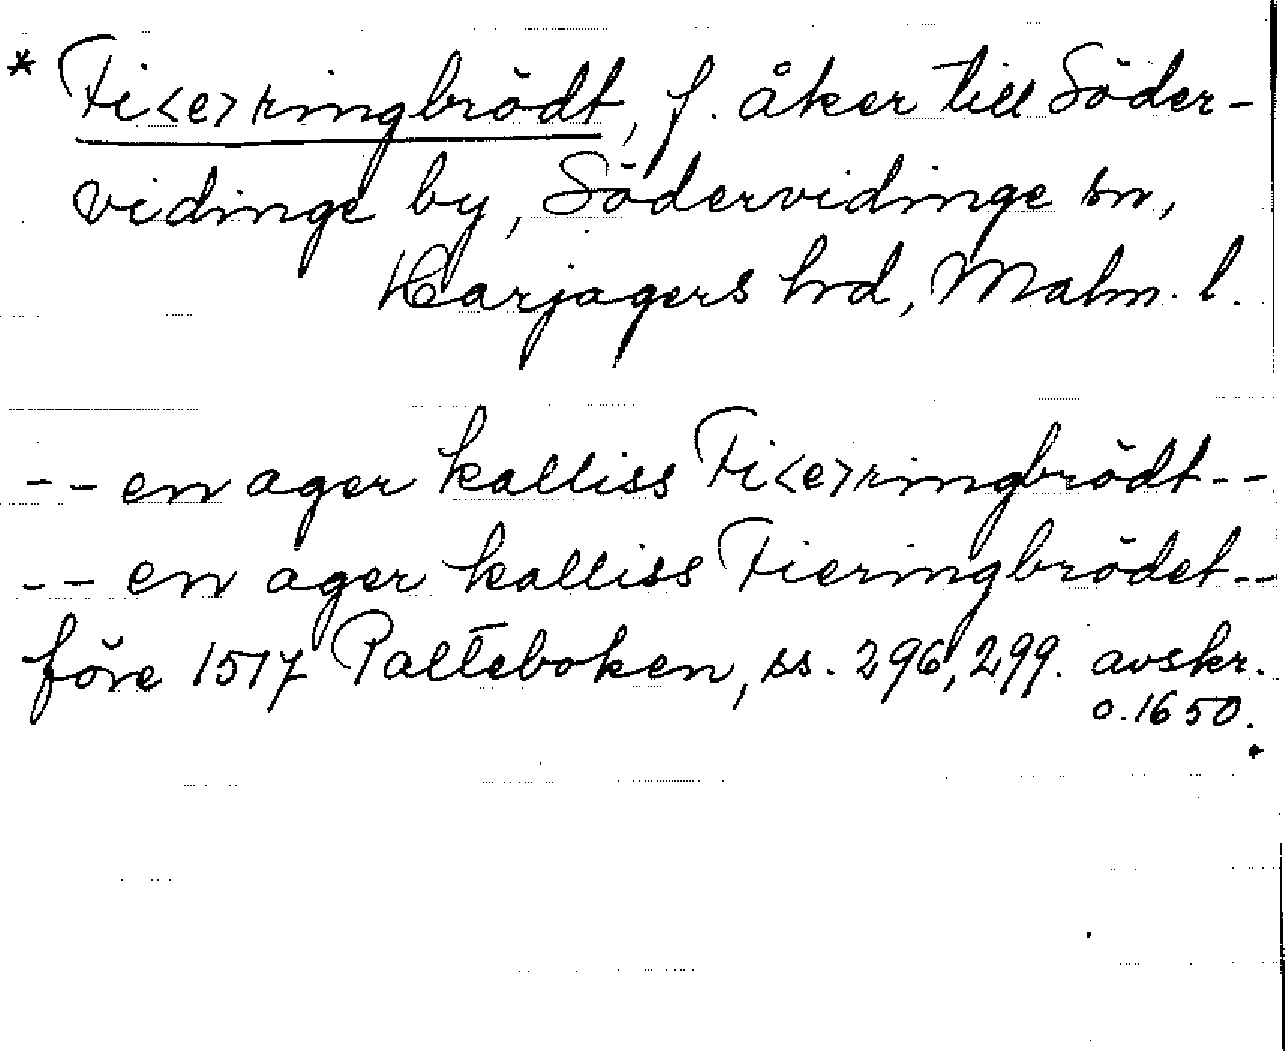 * Fi<e>ringbrödt, f. åker till Söder-
vidinge by, Södervidinge sn,
Harjagers hd, Malm. l.
-- en ager kalliss Fi<e>ringbrödt --
-- en ager kalliss Fieringbrödet --
före 1517 Palteboken, ss. 296, 299. avskr.
o. 1650.